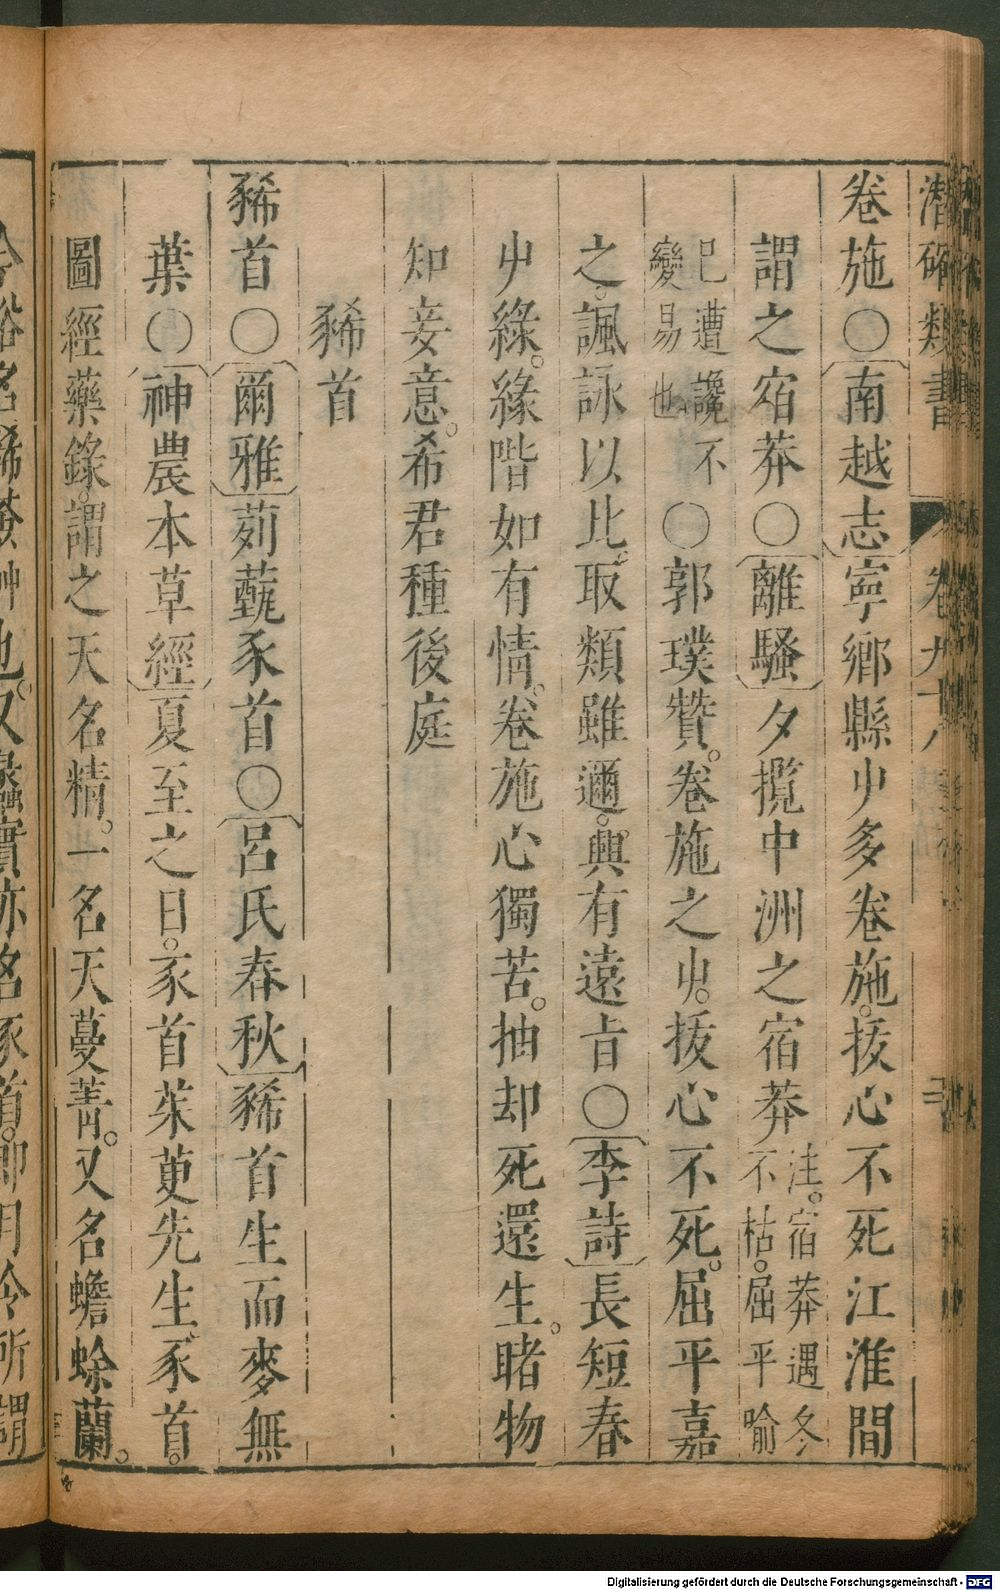 潛確類書 卷九十八
卷施○南越志寧鄉縣屮多卷施。㧞心不死江淮間
謂之宿莽○離騷夕攬中洲之宿莽注。宿莽遇冬不枯。屈平喻
已遭讒不變易也○郭璞贊。卷施之屮。㧞心不死。屈平嘉
之。諷詠以比。取類雖邇。興有遠㫖○李詩長短春
屮綠。緣階如有情。卷施心獨苦。抽却死還生。睹物
知妾意。希君種後庭
豨首
豨首○爾雅茢薽豕首○呂氏春秋豨首生而麥無
葉○神農本草經夏至之日。豕首茱萸先生。豕首。
圖經藥錄。謂之天名精。一名天蔓菁。又名蟾蜍蘭。
名豨薟屮也。又蠡實亦名豕首。即月令所謂
Digitalisierung gefördert durch die Deutsche Forschungsgemeinschaft - DFG